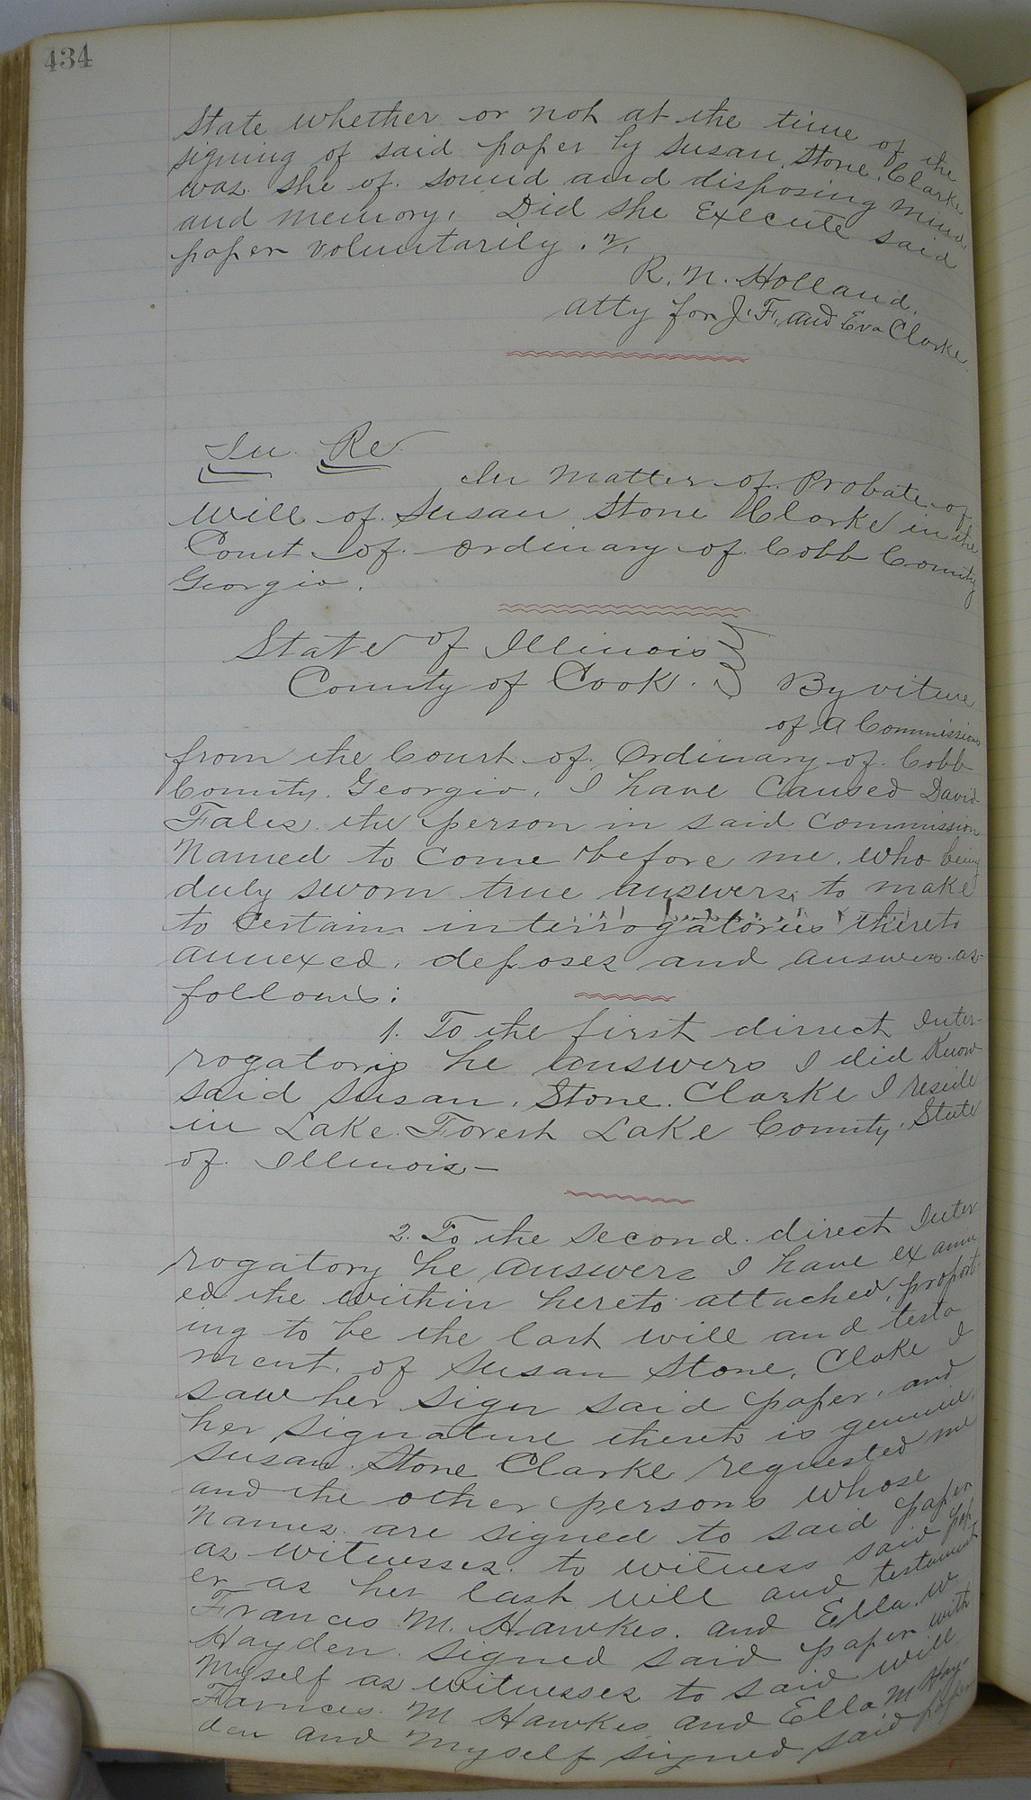 434
State whether or not at the time of the
signing of said paper by Susan Stone Clarke
was she of sound and disposing mind
and memory. Did she Execute said
paper voluntarily.
R. N. Holland.
atty for J. F. and Eva Clarke
In Re
In Matter of Probate of
Will of Susan Stone Clarke in the
Court of Ordinary of Cobb County
Georgia.
State of Illinois
County of Cook. By viture
of a Commission
from the Court of Ordinary of Cobb
County Georgia, I have Caused David
Fales the person in said Commission
Named to Come before me. who being
duly sworn true answers to make
to Certain interrogatories thereto
annexed, deposes and answers as
follows:
1. To the first direct Inter-
rogatory he answers I did Know
said Susan Stone Clarke I reside
in Lake Forest Lake County, State
of Illinois -
2. To the Second direct Inter
rogatory he answers I have examin
ed the within hereto attached, proport-
ing to be the last will and testa
ment of Susan Stone Clake I
saw her sign said paper, and
her signature thereto is genuine.
Susan Stone Clarke requested me
and the other persons whose
names are signed to said paper
as witnesses to witness said pap
er as her last will and testament
Frances M. Hawkes. and Ella W
Hayden signed said paper with
Myself as witnesses to said will
Farnces M Hawkes and Ella M Hay-
den and Myself signed said paper